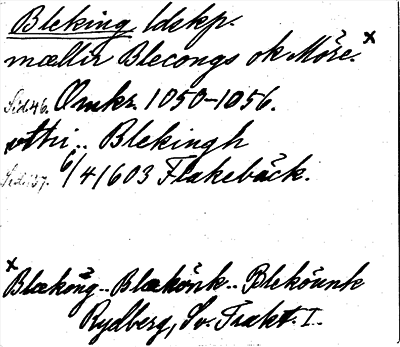 Bleking ldskp.
mællir Blecongs ok Møre.x
Sid 46. Omkr. 1050-1056.
vthi.. Blekingh
Sid 137. 6/4 1603 Flakebäck.
x
Blækŏng.. Blækŏnk.. Blekŏunk
Rydberg, Sv. Trakt. I..